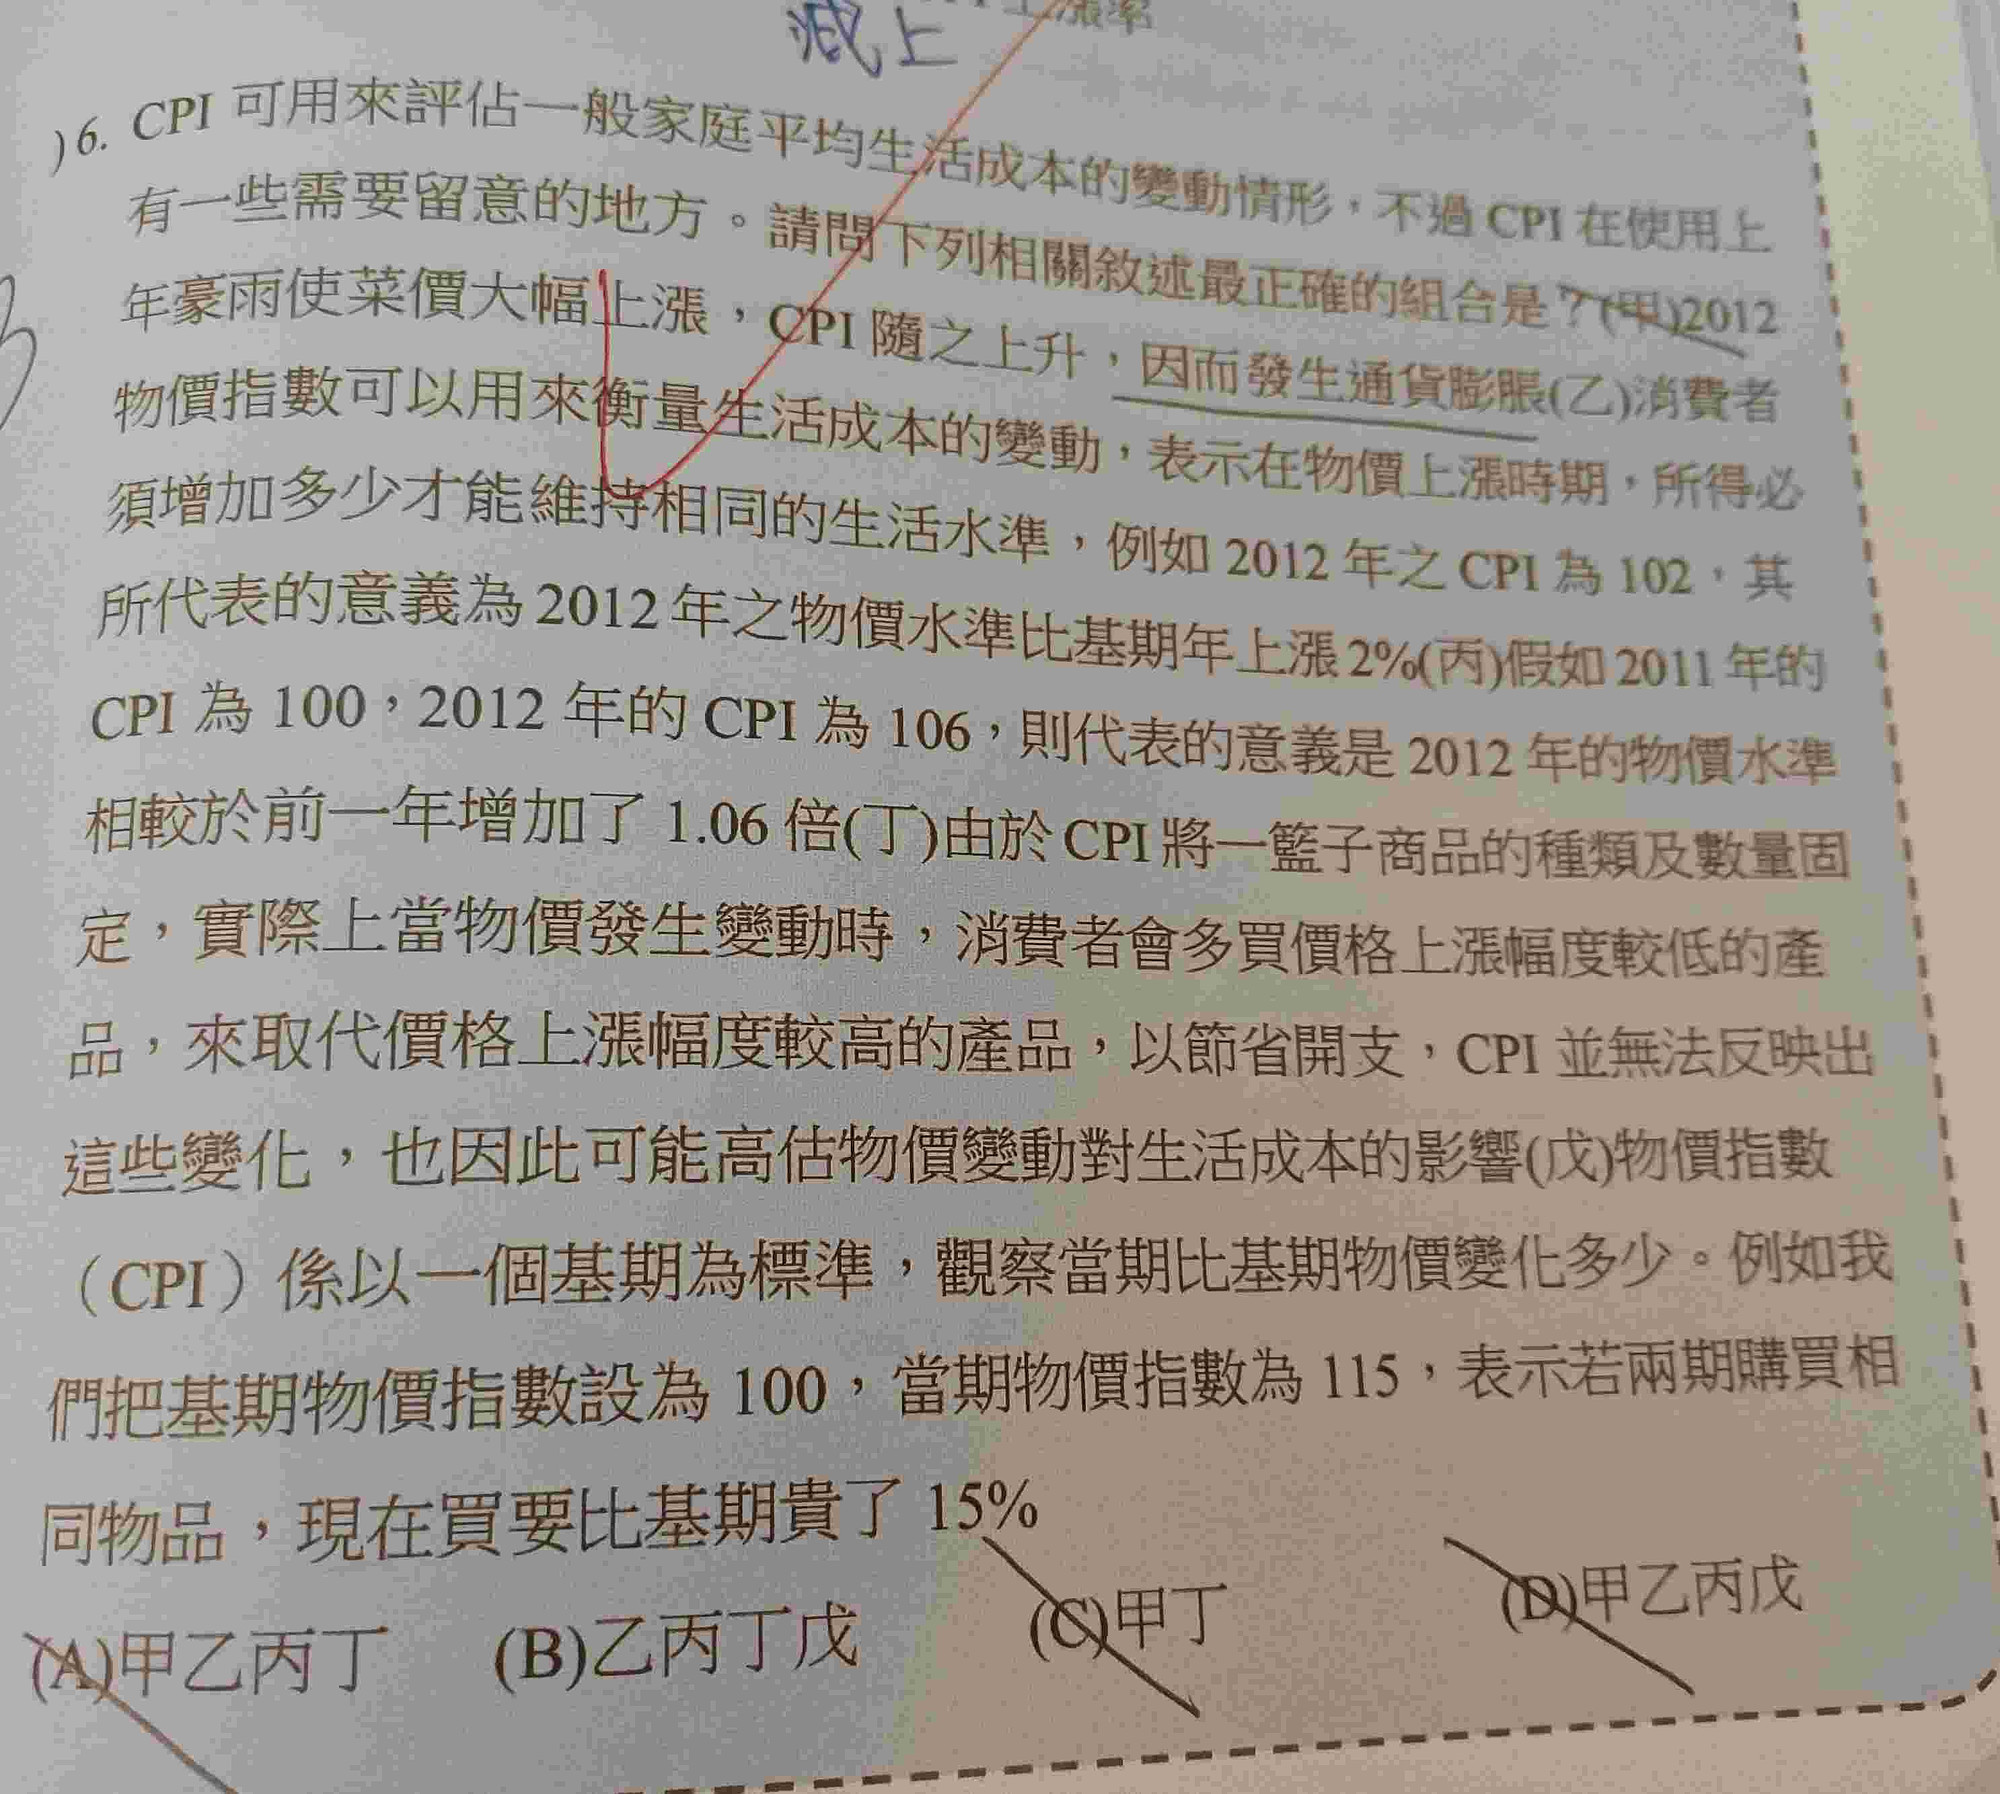 減上
漲率
)6. CPI 可用來評估一般家庭平均生活成本的變動情形，不過 CPI 在使用上
有一些需要留意的地方。請問下列相關敘述最正確的組合是？(甲)2012
年豪雨使菜價大幅上漲，CPI 隨之上升，因而發生通貨膨脹(乙)消費者
物價指數可以用來衡量生活成本的變動，表示在物價上漲時期，所得必
須增加多少才能維持相同的生活水準，例如 2012 年之 CPI 為 102，其
所代表的意義為 2012 年之物價水準比基期年上漲 2%(丙)假如 2011 年的
CPI 為 100，2012 年的 CPI 為 106，則代表的意義是 2012 年的物價水準
相較於前一年增加了 1.06 倍(丁)由於 CPI 將一籃子商品的種類及數量固
定，實際上當物價發生變動時，消費者會多買價格上漲幅度較低的產
品，來取代價格上漲幅度較高的產品，以節省開支，CPI 並無法反映出
這些變化，也因此可能高估物價變動對生活成本的影響(戊)物價指數
（CPI）係以一個基期為標準，觀察當期比基期物價變化多少。例如我
們把基期物價指數設為 100，當期物價指數為 115，表示若兩期購買相
同物品，現在買要比基期貴了 15%
(A)甲乙丙丁 (B)乙丙丁戊 (C)甲丁 (D)甲乙丙戊